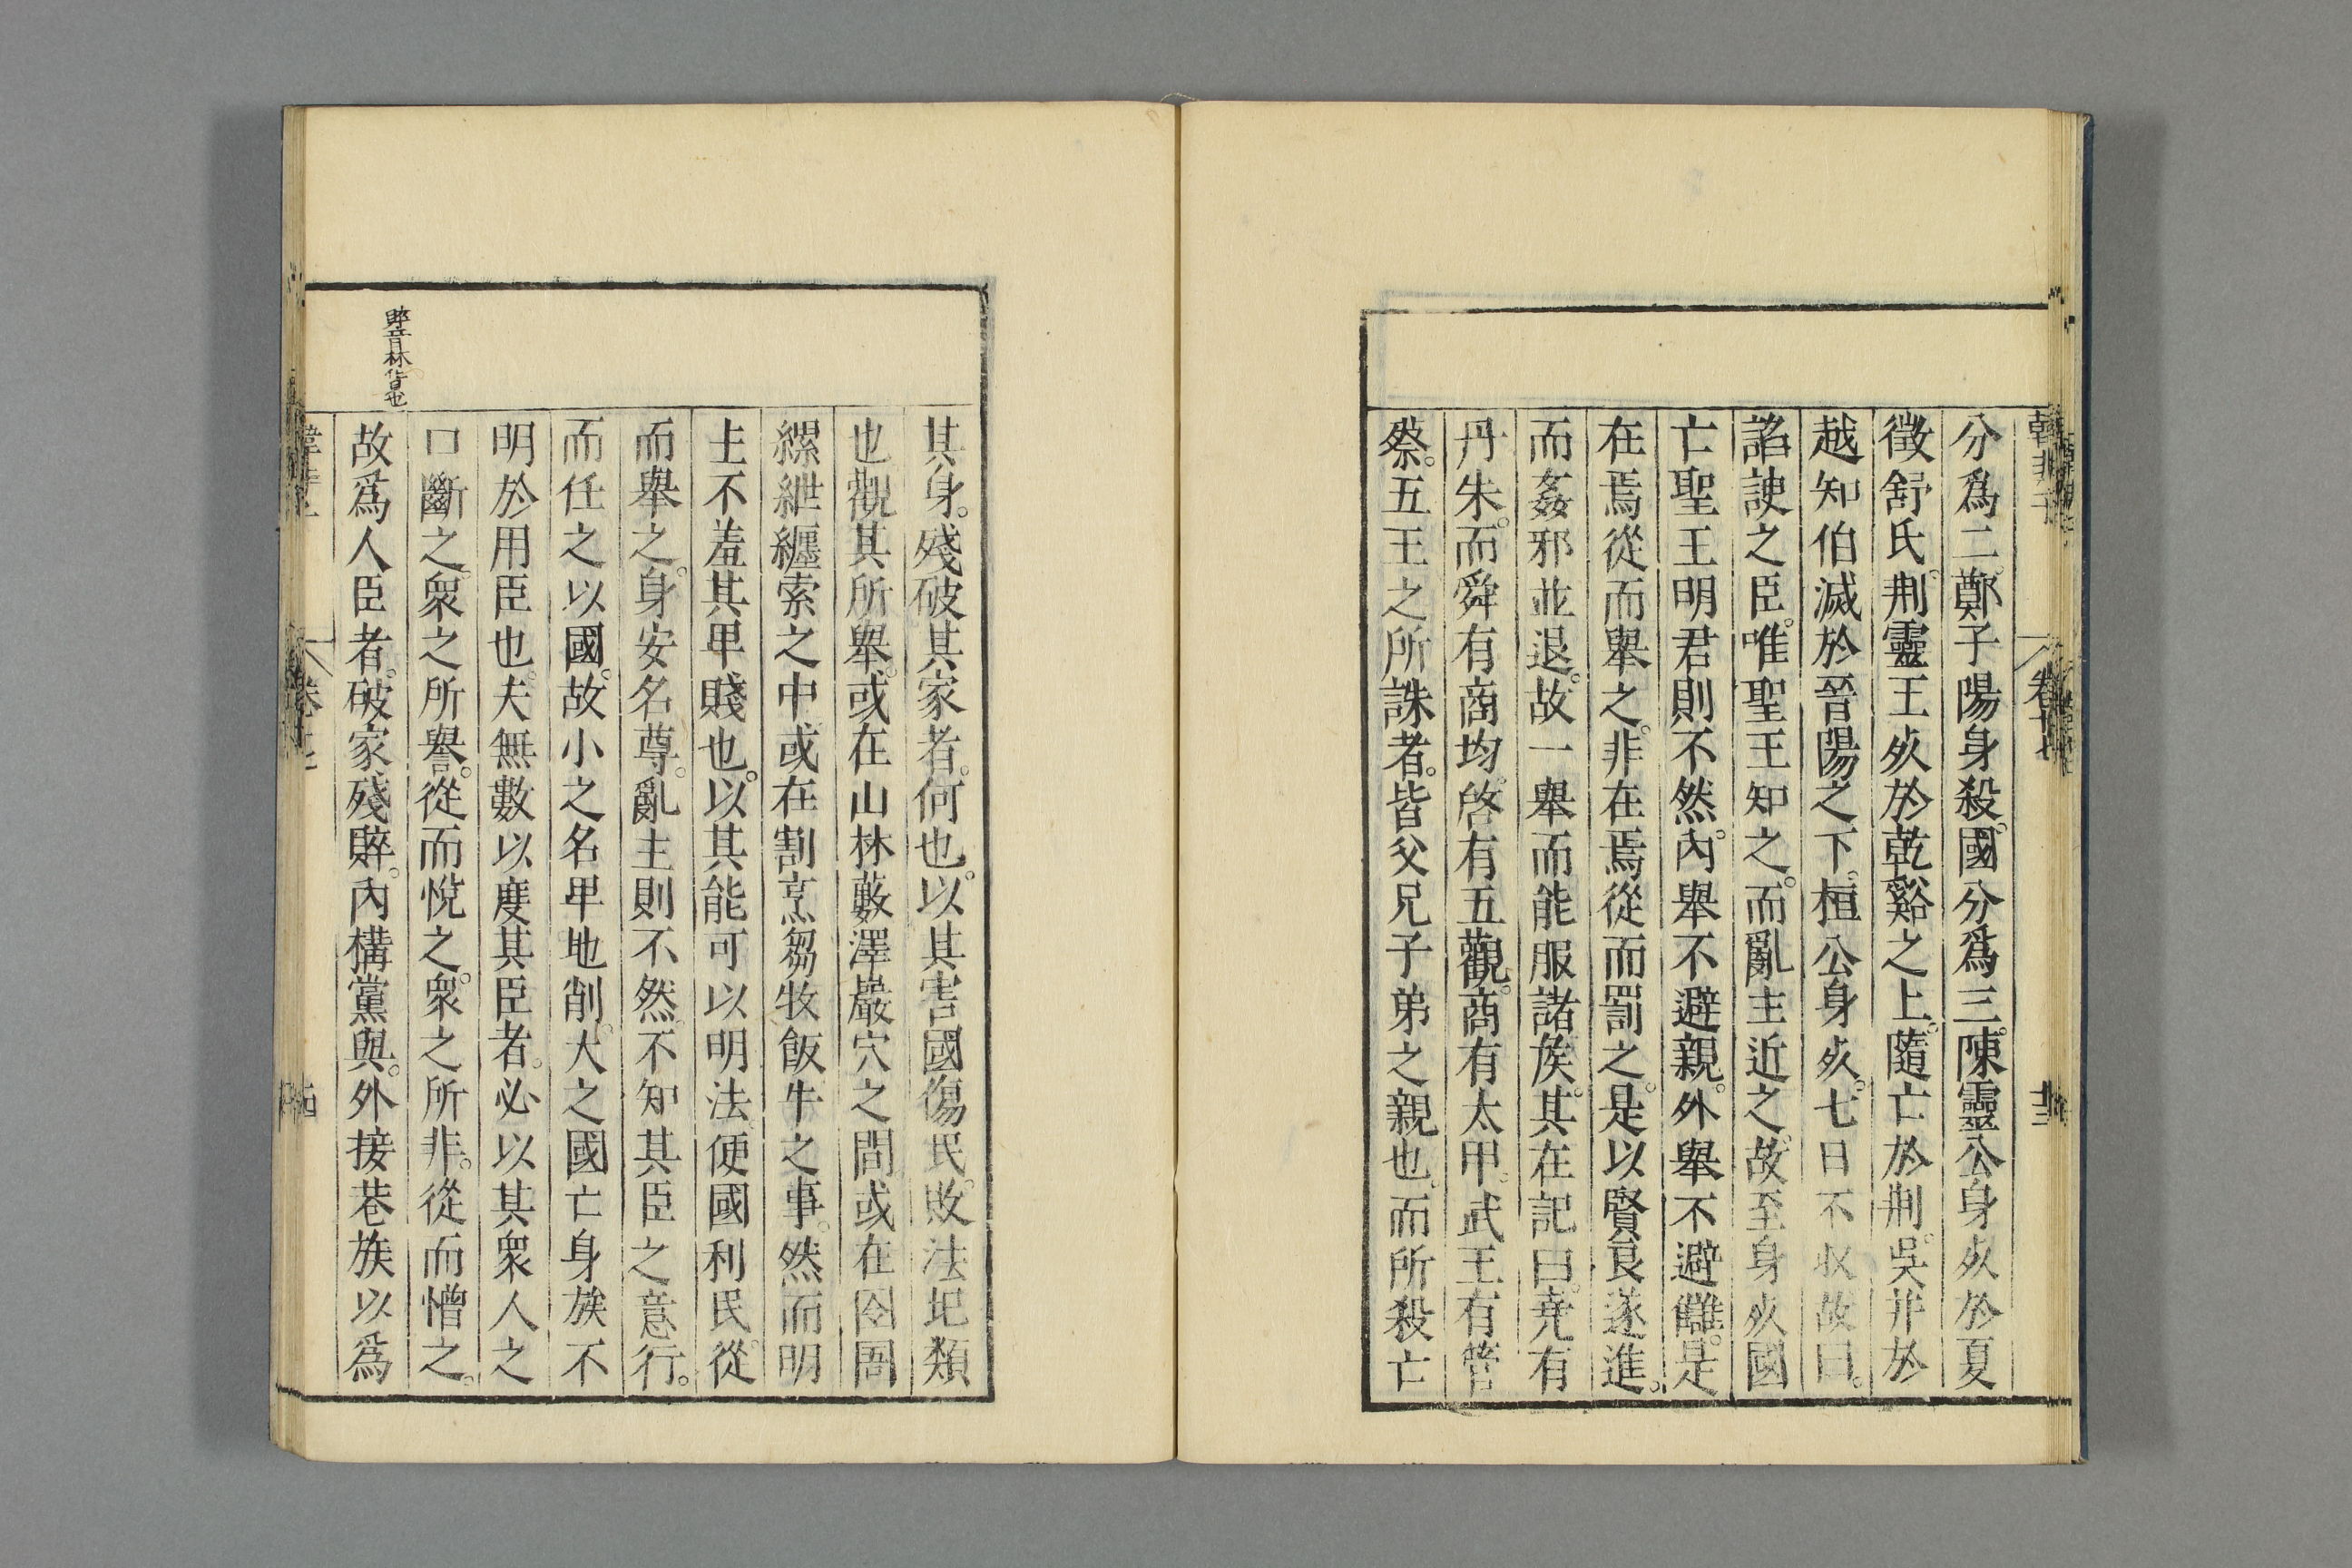 韓非子　卷十七　十三
分爲二。鄭子陽身殺。國分爲三。陳靈公身死於夏
徵舒氏。荆靈王死於乾谿之上。隨亡於荆。吳并於
越知伯滅於晉陽之下。桓公身死。七日不收故曰。
諂諛之臣。唯聖王知之。而亂主近之。故至身死國
亡聖王明君則不然。內舉不避親。外舉不避讎。是
在焉從而舉之。非在焉從而罰之。是以賢良遂進。
而姦邪並退。故一舉而能服諸侯。其在記曰。堯有
丹朱。而舜有商均。啓有五觀。商有太甲。武王有管
蔡。五王之所誅者。皆父兄子弟之親也。而所殺亡
其身。殘破其家者。何也。以其害國傷民。敗法圮類
也觀其所舉。或在山林藪澤巖穴之間或在囹圄
縲紲纏索之中或在割烹芻牧飯牛之事。然而明
主不羞其卑賤也。以其能可以明法便國利民。從
而舉之。身安名尊。亂主則不然。不知其臣之意行。
而任之以國。故小之名卑地削。大之國亡身。族不
明於用臣也。夫無數以度其臣者。必以其衆人之
口斷之。衆之所譽。從而悅之。衆之所非。從而憎之。
故爲人臣者。破家殘賥。內構黨與。外接巷族以爲
賥音林貨也